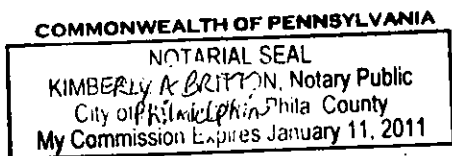 COMMONWEALTH OF PENNSYLVANIA
NOTARIAL SEAL
KIMBERLY A BRITTON, Notary Public
City of Philadelphia Phila County
My Commission Expires January 11, 2011